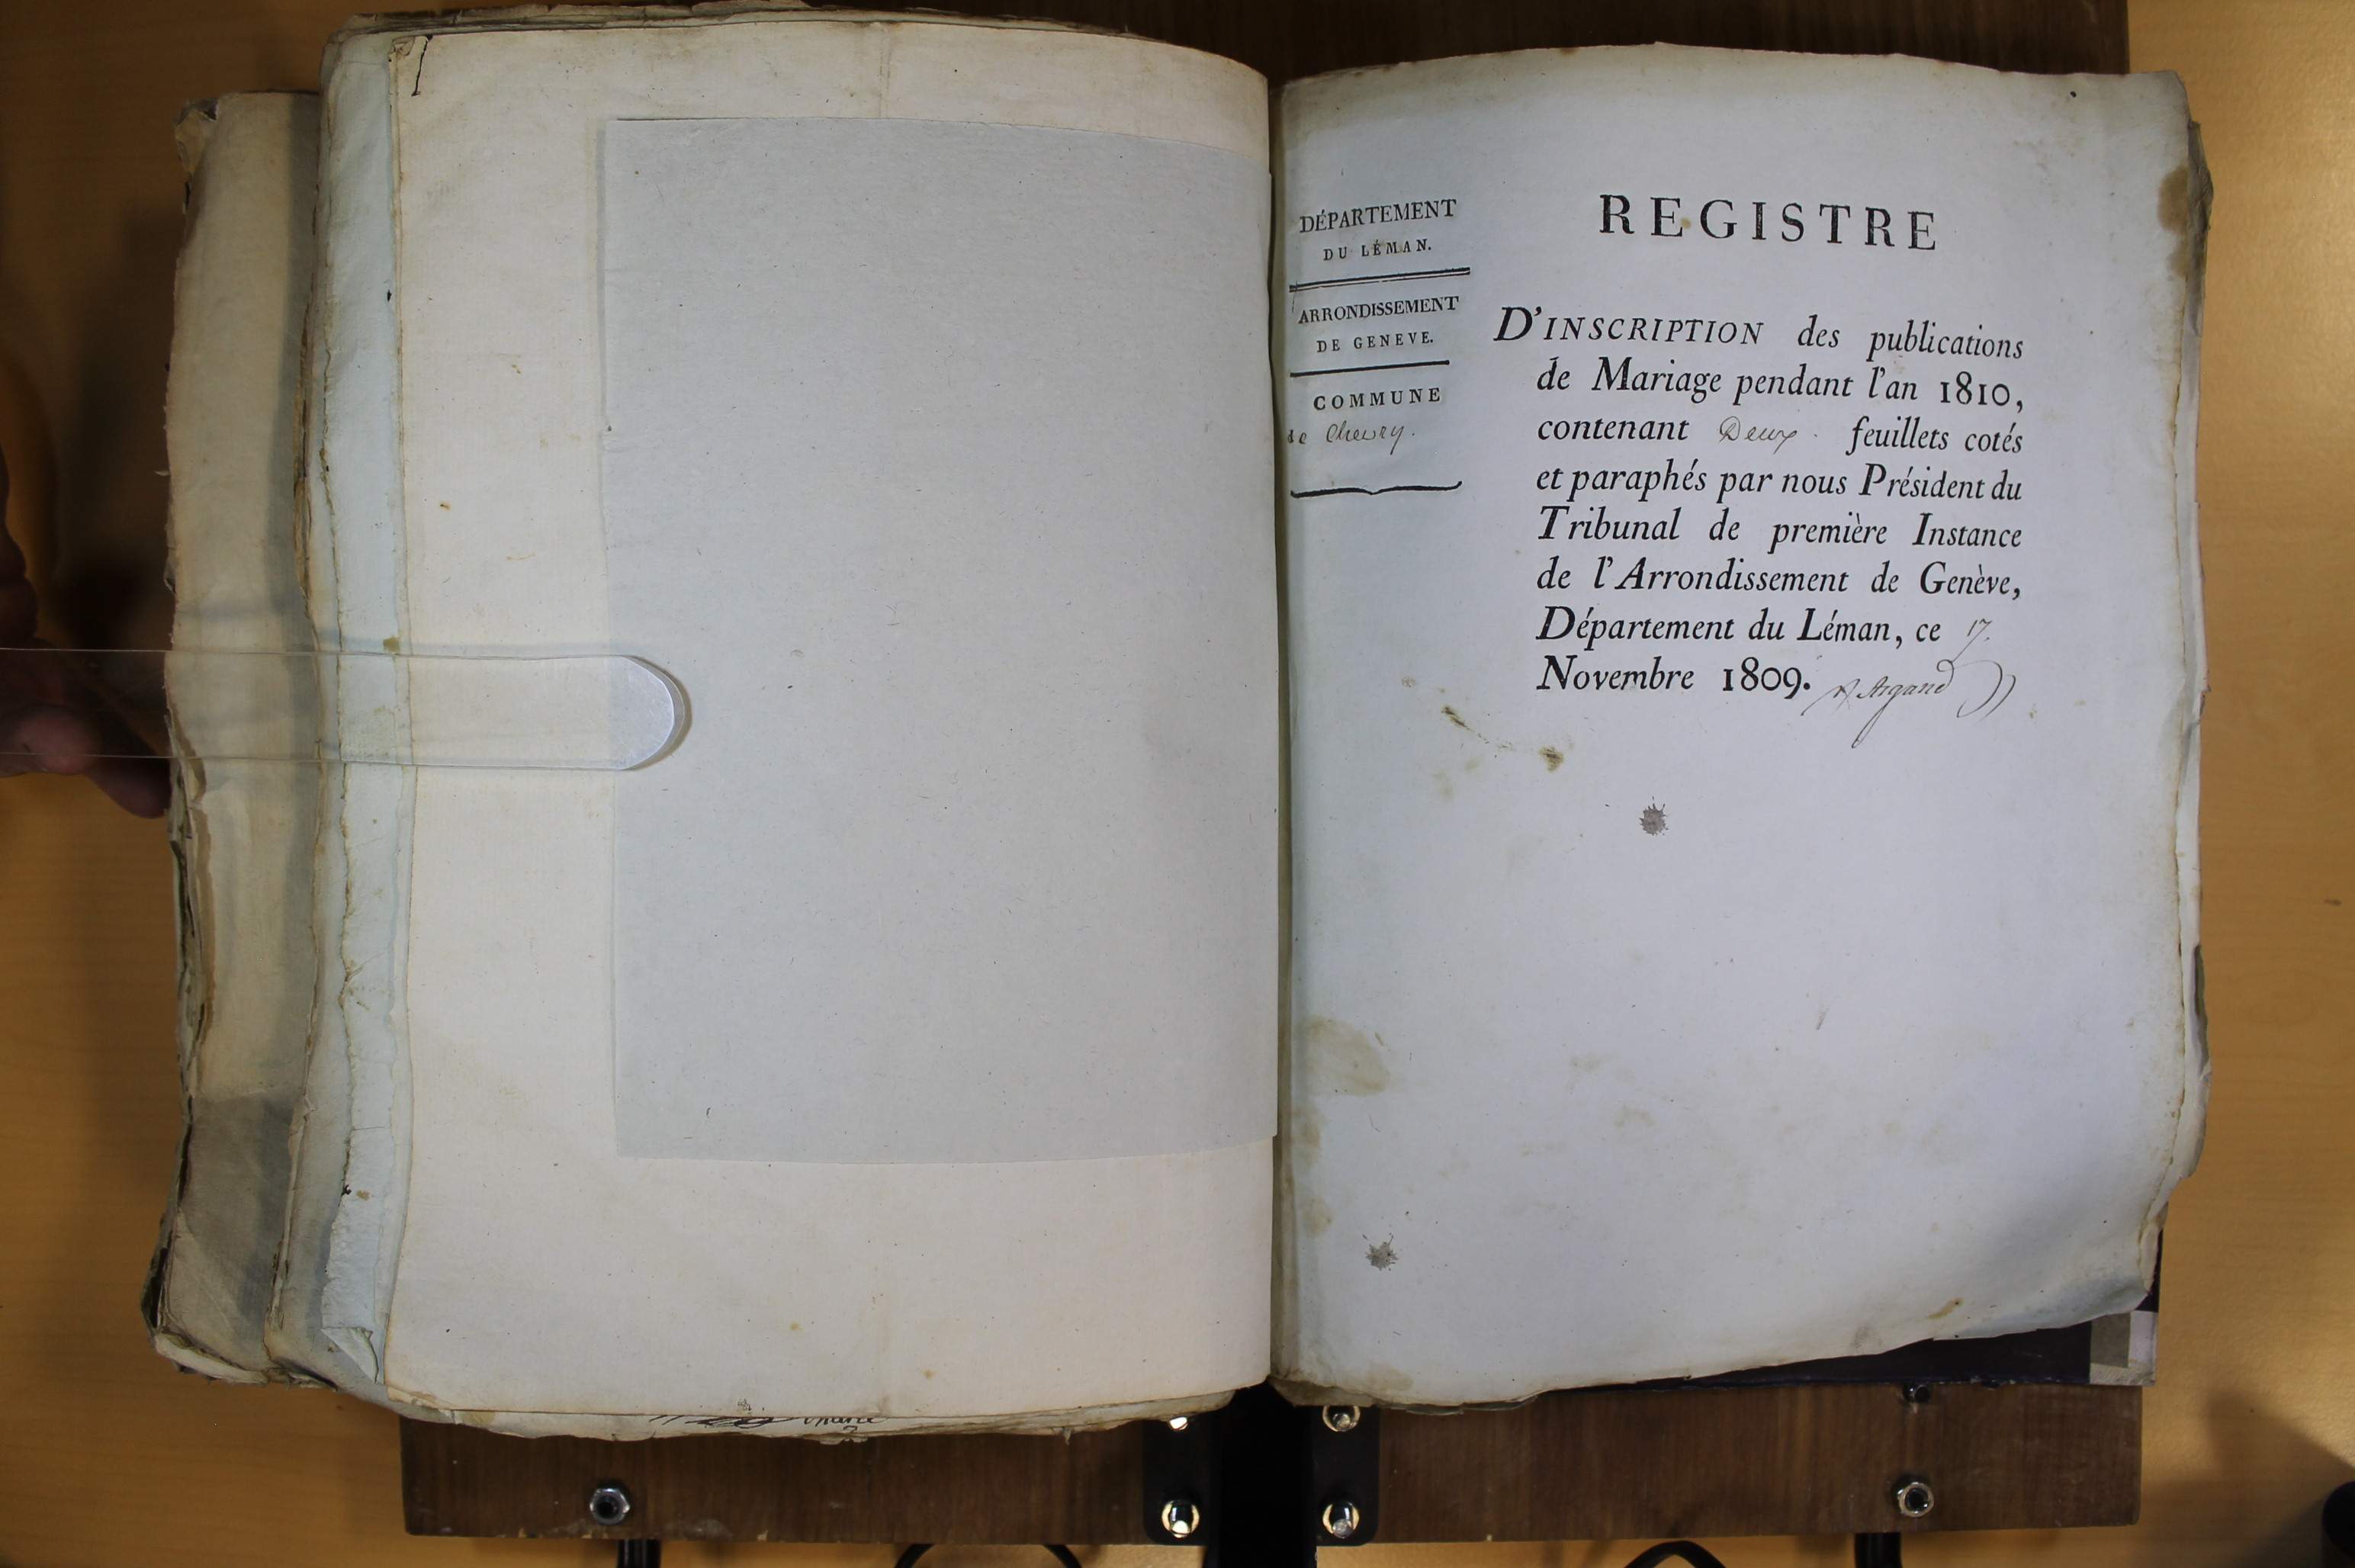 DÉPARTEMENT
DU LÉMAN.
ARRONDISSEMENT
DE GENEVE.
COMMUNE
de Chevry.
REGISTRE
D'INSCRIPTION des publications
de Mariage pendant l'an 1810,
contenant Deux feuillets cotés
et paraphés par nous Président du
Tribunal de première Instance
de l'Arrondissement de Genève,
Département du Léman, ce 17.
Novembre 1809. Argand